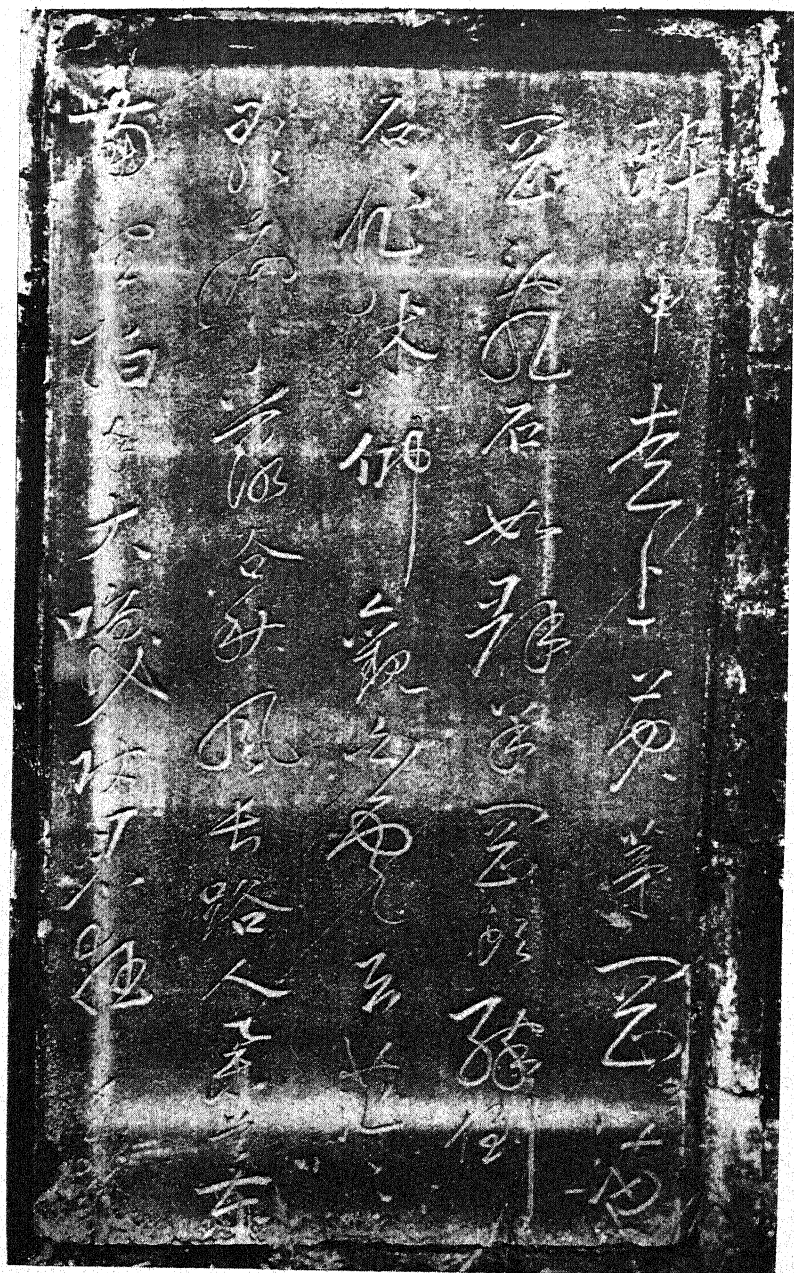 醉中走上黃茅岡滿
岡亂石如群羊岡頭醉倒
石作床仰觀白雲天茫茫
歌聲落谷秋風長路人舉首東
南望拍手大咲使君狂